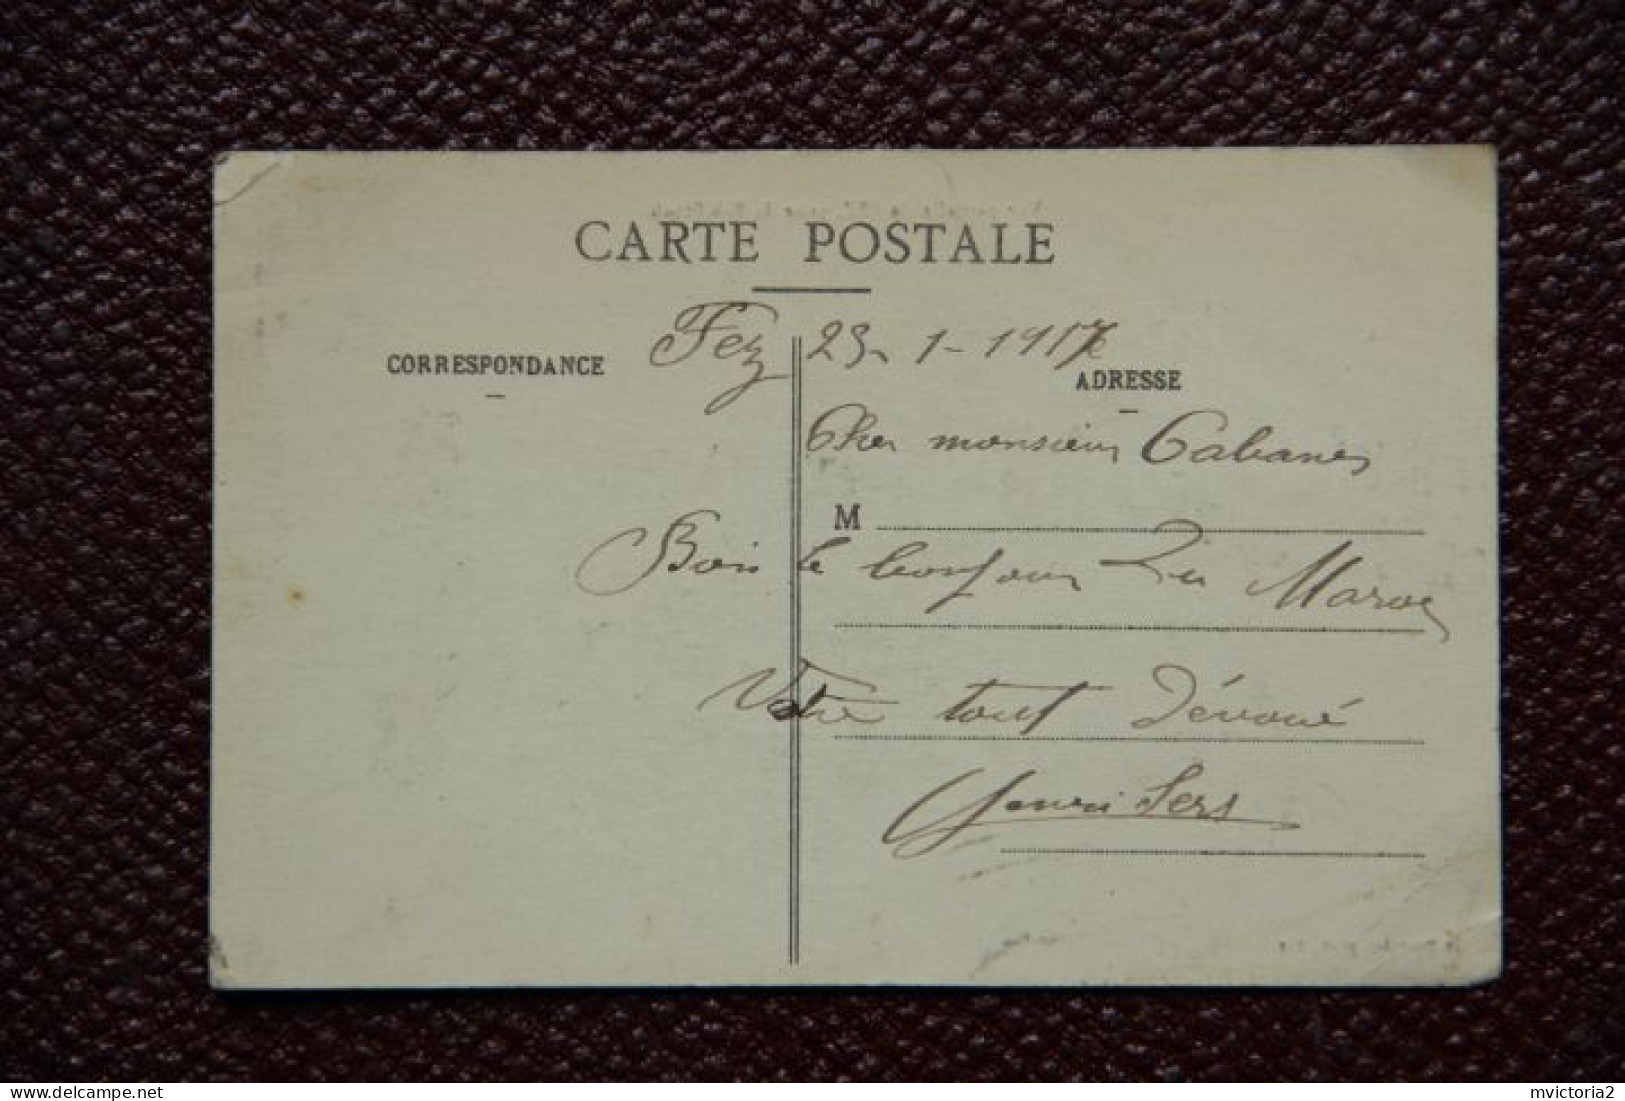 CARTE POSTALE
Fez 23-1-1917
CORRESPONDANCE
ADRESSE
Cher monsieur Cabanes
M
Bien le bonjour du Maroc
Votre tout dévoué
Henri Sers
delcampe.net
mvictoria2